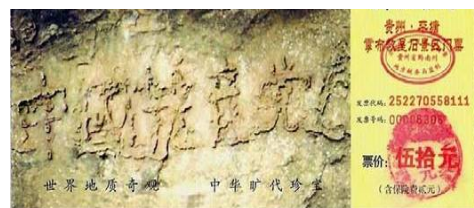 中國共產党
世界地质奇观 中华旷代珍宝
贵州·平塘
掌布
景区门票
发票代码: 252270558111
发票号码: 00006306
票价: 伍拾元
(含保险费贰元)